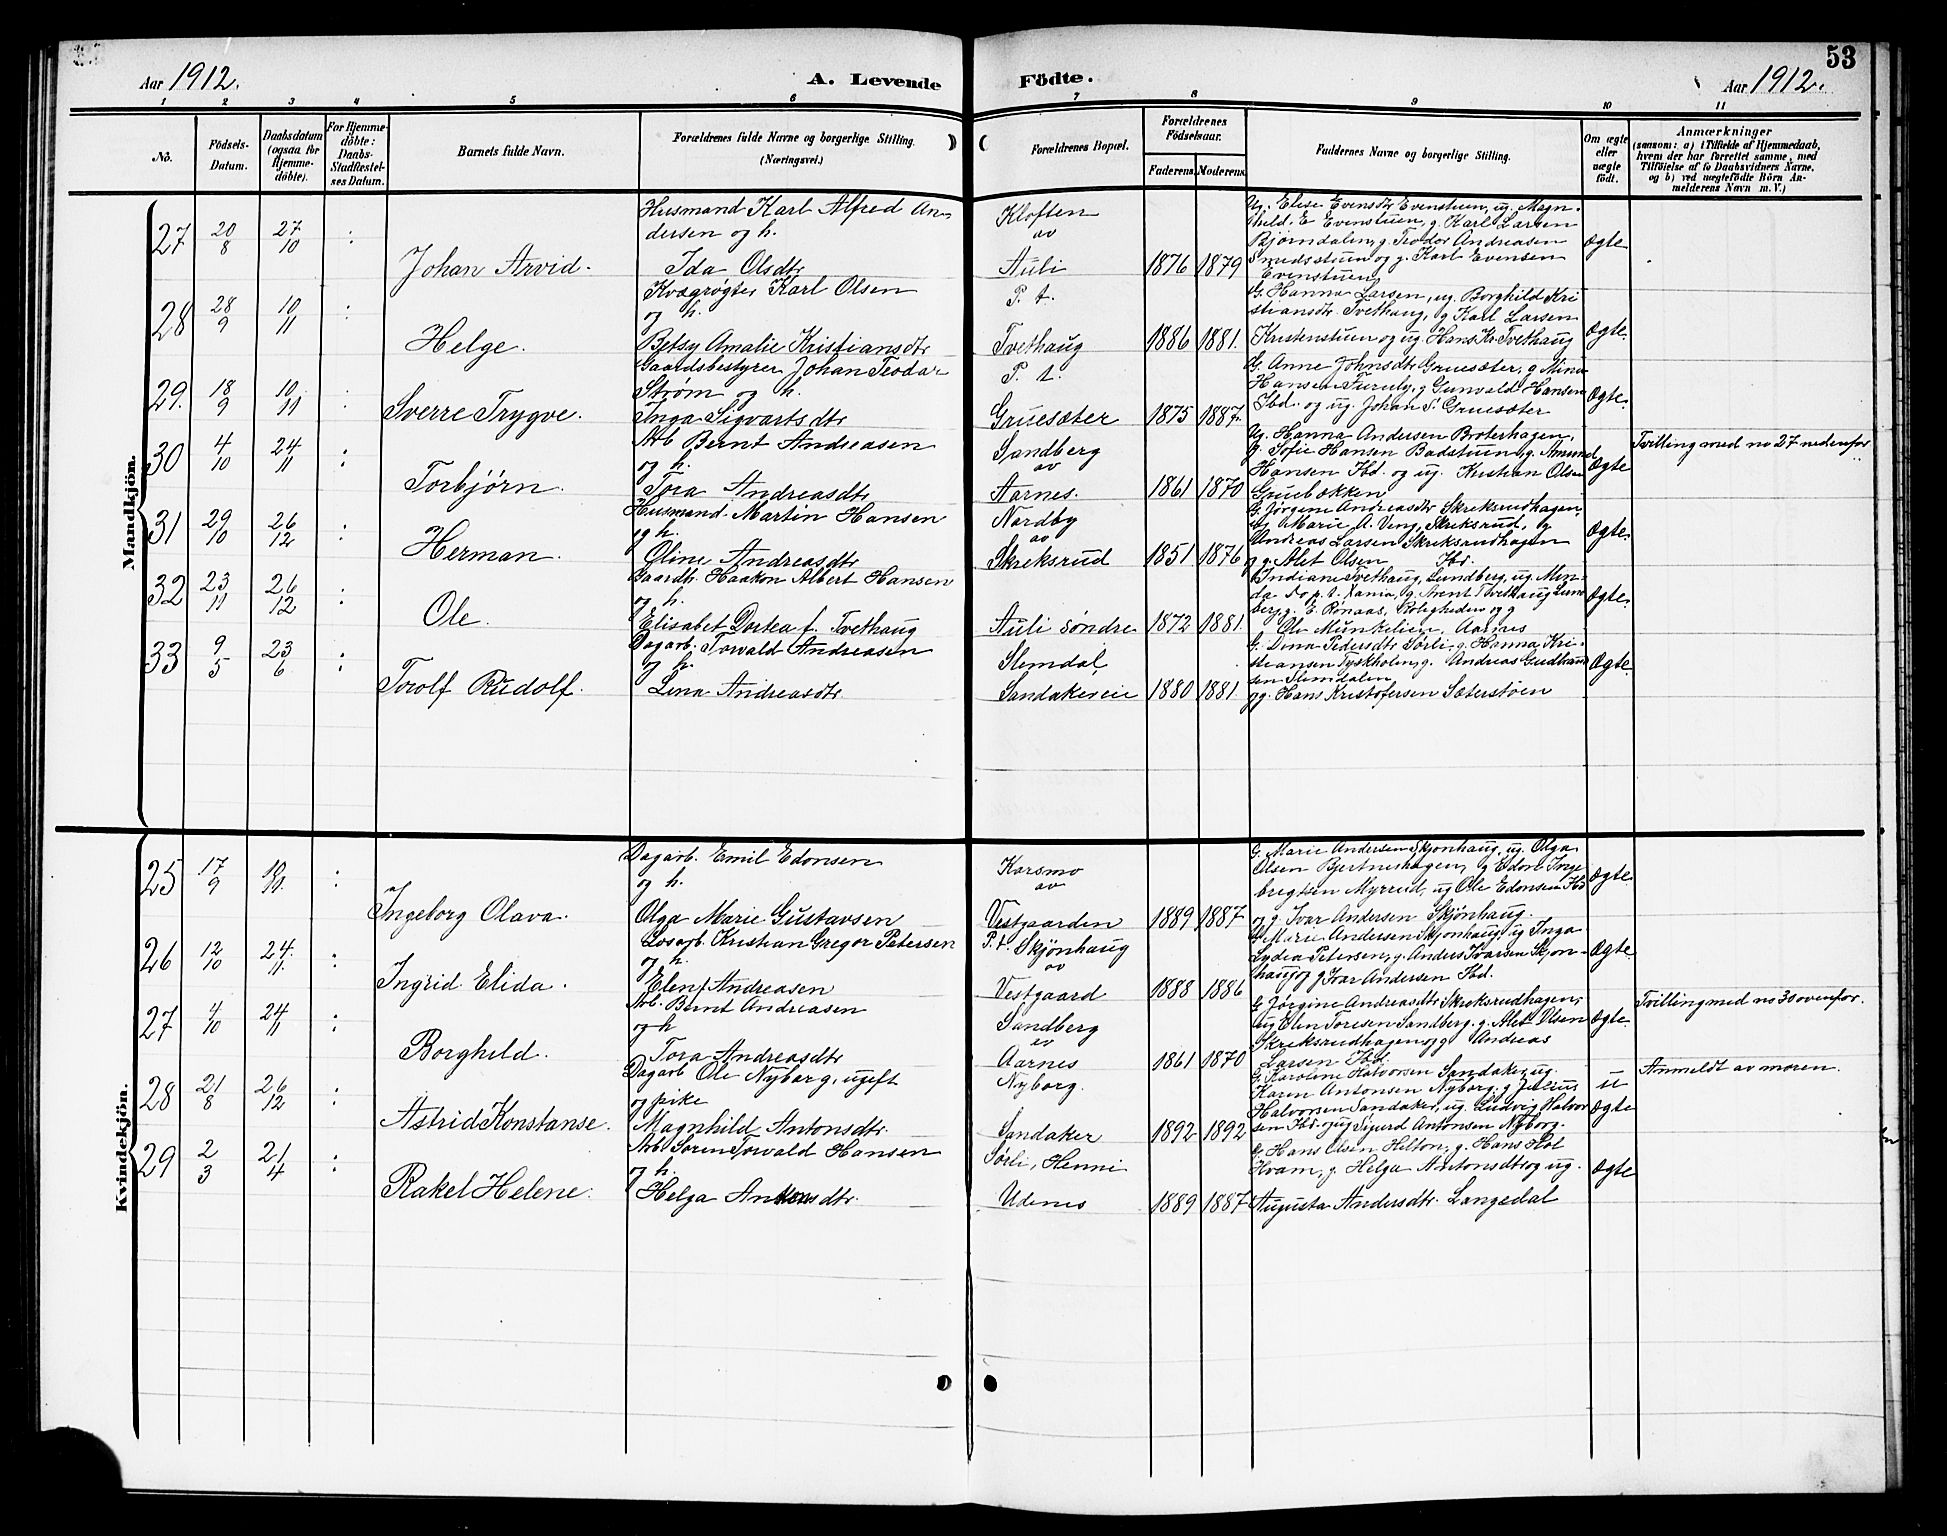 53
Aar 1912.
A. Levende
Födte.
Aar 1912.
1 2 3 4 5 6 7 8 9 10 11
No.
Födsels-
Datum.
Daabsdatum
(ogsaa for
Hjemme-
döbte).
For Hjemme-
döbte:
Daabs-
Stadfæstel-
ses Datum.
Barnets fulde Navn.
Forældrenes fulde Navne og borgerlige Stilling.
(Næringsvei.)
Forældrenes Bopæl.
Forældrenes
Födselsaar.
Faderens. Moderens.
Faddernes Navne og borgerlige Stilling.
Om ægte
eller
uægte
födt.
Anmærkninger
(saasom: a) i Tilfælde af Hjemmedaab,
hvem der har forrettet samme, med
Tilföielse af to Daabsvidners Navne,
og b) ved uægtefödte Börn An-
melderens Navn m. V.)
Mandkjön.
27 20/8 27/10 :
Johan Arvid.
Husmand Karl Alfred An-
dersen og h.
Ida Olsdtr
Kloften
av
Auli
1876 1879
Ug. Elise Evensdtr Evenstuen, ug. Magn-
hild E Evenstuen, g. Karl Larsen
Bjørndalen, g. Teodor Andreasen
Smedsstuen og g. Karl Evensen
Evenstuen
Ægte
28 28/9 10/11 :
Helge.
Kvægrøgter Karl Olsen
og h.
Betsy Amalie Kristiansdtr
P. t.
Tvethaug
1886 1881.
G. Hanna Larsen, ug. Borghild Kri-
stiansdtr Tvethaug, g Karl Larsen
og ug. Hans Kr. Tvethaug
Ægte.
29. 18/9 10/11 :
Sverre Trygve.
Gaardsbestyrer Johan Teodor
Strøm og h.
Inga Sigvartsdtr
P. t.
Gruesæter
1875 1887.
G. Anne Johnsdtr Gruesæter, g Mina
Hansen Furuly, g Gunvald Hansen
Ibd. og ug. Johan S. Gruesæter
Ægte.
30 4/10 24/11 :
Torbjørn.
Arb Bernt Andreasen
og h.
Tora Andreasdtr
Sandberg
av
Aarnes.
1861 1870
Ug. Hanna Andersen Broterhagen,
g. Sofie Hansen Badstuen, g. Amund
Hansen Ibd. og ug. Kristian Olsen
Gruebækken
Ægte
Tvilling med no 27 nedenfor
31 29/10 26/12 :
Herman.
Husmand Martin Hansen
og h.
Oline Andreasdtr
Nordby
av
Skreksrud
1851 1876
G. Jørgine Andreasdtr Skreksrudhagen,
ug Marie A. Veng, Skreksrud, g
Andreas Larsen Skreksrudhagen
og g. Alet Olsen Ibd.
Ægte.
32 23/11 26/12 :
Ole.
Gaardb. Haakon Albert Hansen
og h.
Elisabet Dortea f. Tvethaug
Auli søndre
1872 1881.
Indiane Tvethaug, Lundberg, ug. Min-
da do p. t. Xania, g. Arent Tvethaug Lund
berg, g. E. Rønaas, Roligheden og g
Ole Munkelien, Aarnes
Ægte.
33 9/5 23/6 :
Torolf Rudolf.
Dagarb. Torvald Andreasen
og h.
Lina Andreasdtr
Slemdal,
Sandakereie
1880 1881.
G. Dina Pedersdtr Sørli, g. Hanna Kri-
stiansen Tyskholen, g. Andreas Gudbrand
sen Slemdalen
og g. Hans Kristofersen Sæterstøen
Ægte.
Kvindekjön.
25 17/9 10/11. :
Ingeborg Olava.
Dagarb. Emil Edonsen
og h.
Olga Marie Gustavsen
Korsmo
av
Vestgaarden
1889 1887
G. Marie Andersen Skjønhaug, ug. Olga
Olsen Bjertneshagen, g Edon Inge
bregtsen Myrrud, ug Ole Edonsen Ibd
og g. Ivar Andersen Skjønhaug.
Ægte.
26 12/10 24/11. :
Ingrid Elida.
Losarb. Kristian Gregor Petersen
og h.
Elen Andreasen
P.t. Skjønhaug
av
Vestgaard
1888 1886
G. Marie Andersen Skjønhaug, ug Inga
Lydia Petersen, g. Anders Ivarsen Skjøn-
haug og g Ivar Andersen Ibd.
Ægte
27 4/10 24/11 :
Borghild.
Arb. Bernt Andreasen
og h
Tora Andreasdtr
Sandberg
av
Aarnes
1861 1870
G. Jørgine Andreasdtr Skreksrudhagen,
ug Elin Toresen Sandberg. g. Alet Olsen
Skreksrudhagen og g Andreas
Larsen Ibd.
Ægte.
Tvilling med no 30 ovenfor.
28 21/8 26/12 :
Astrid Konstanse.
Dagarb Ole Nyborg, ugift
og pike
Magnhild Antonsdtr.
Nyborg.
Sandaker
1892 1892
G. Karoline Halvorsen Sandaker, ug.
Karen Antonsen Nyborg. g Julius
Halvorsen Sandaker, ug. Ludvig Halvor
sen Ibd. og ug Sigurd Antonsen Nyborg.
u
Ægte
Anmeldt av moren.
29 2/3 21/4 :
Rakel Helene.
Arb Søren Torvald Hansen
og h.
Helga Antonsdtr.
Sørli, Henni
Udenes
1889 1887
G. Hans Olsen Helton, g. Hans Hol
Hvam, g. Helga Antonsdtr og ug.
Augusta Andersdtr. Langedal
Ægte